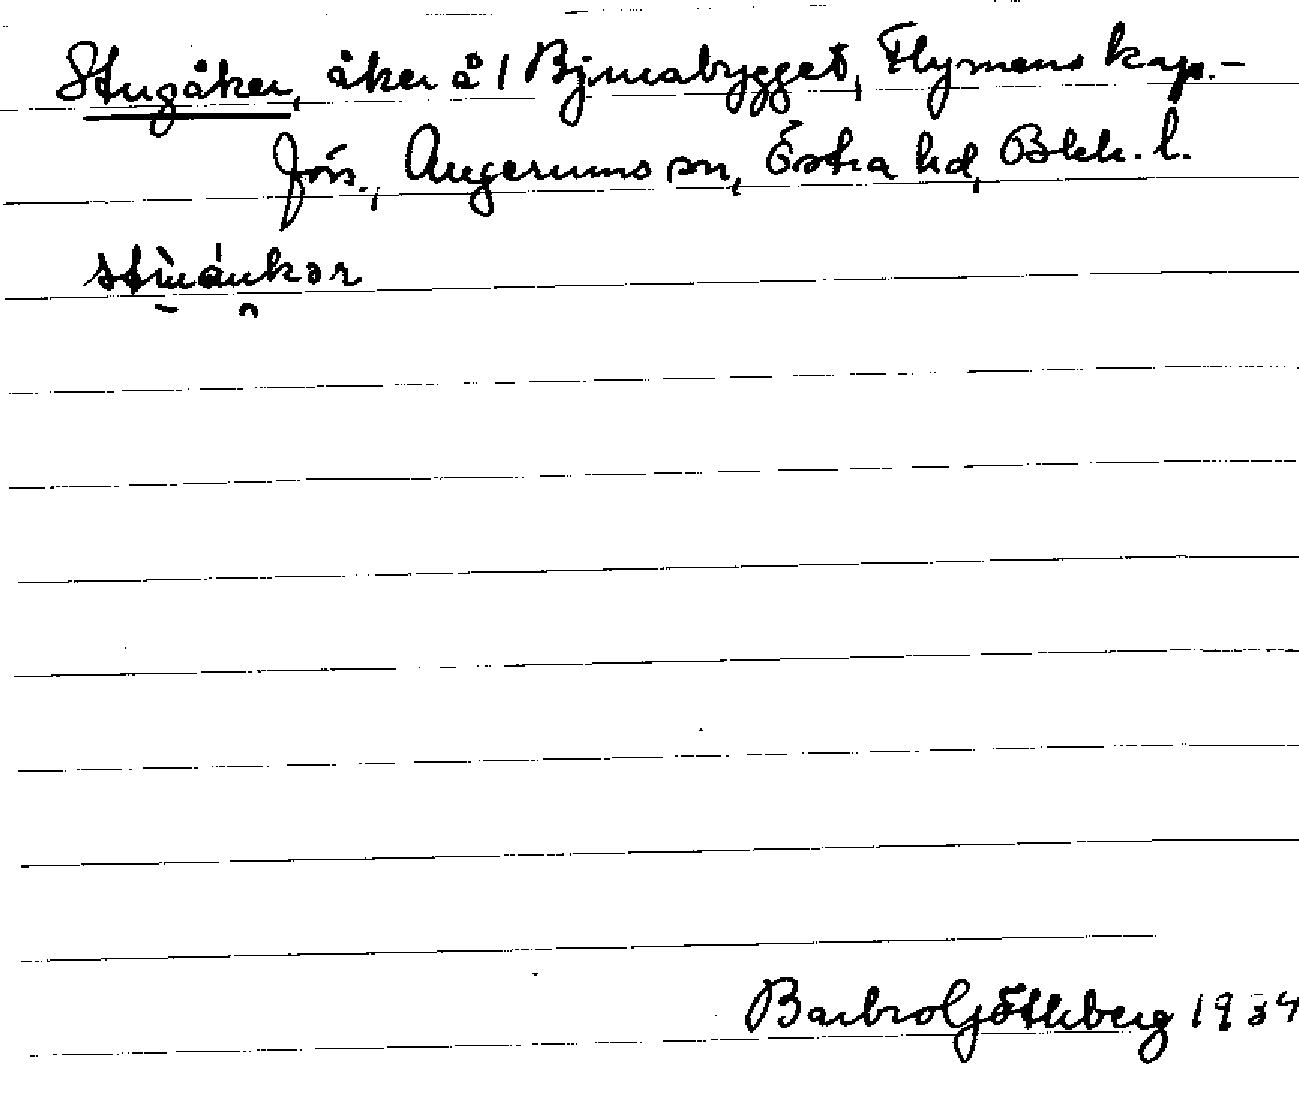 Stugåker, åker å 1 Björsabygget, Flymens kap.-
förs., Augerums sn, Östra hd, Blek. l.
Barbro Götheberg 1934